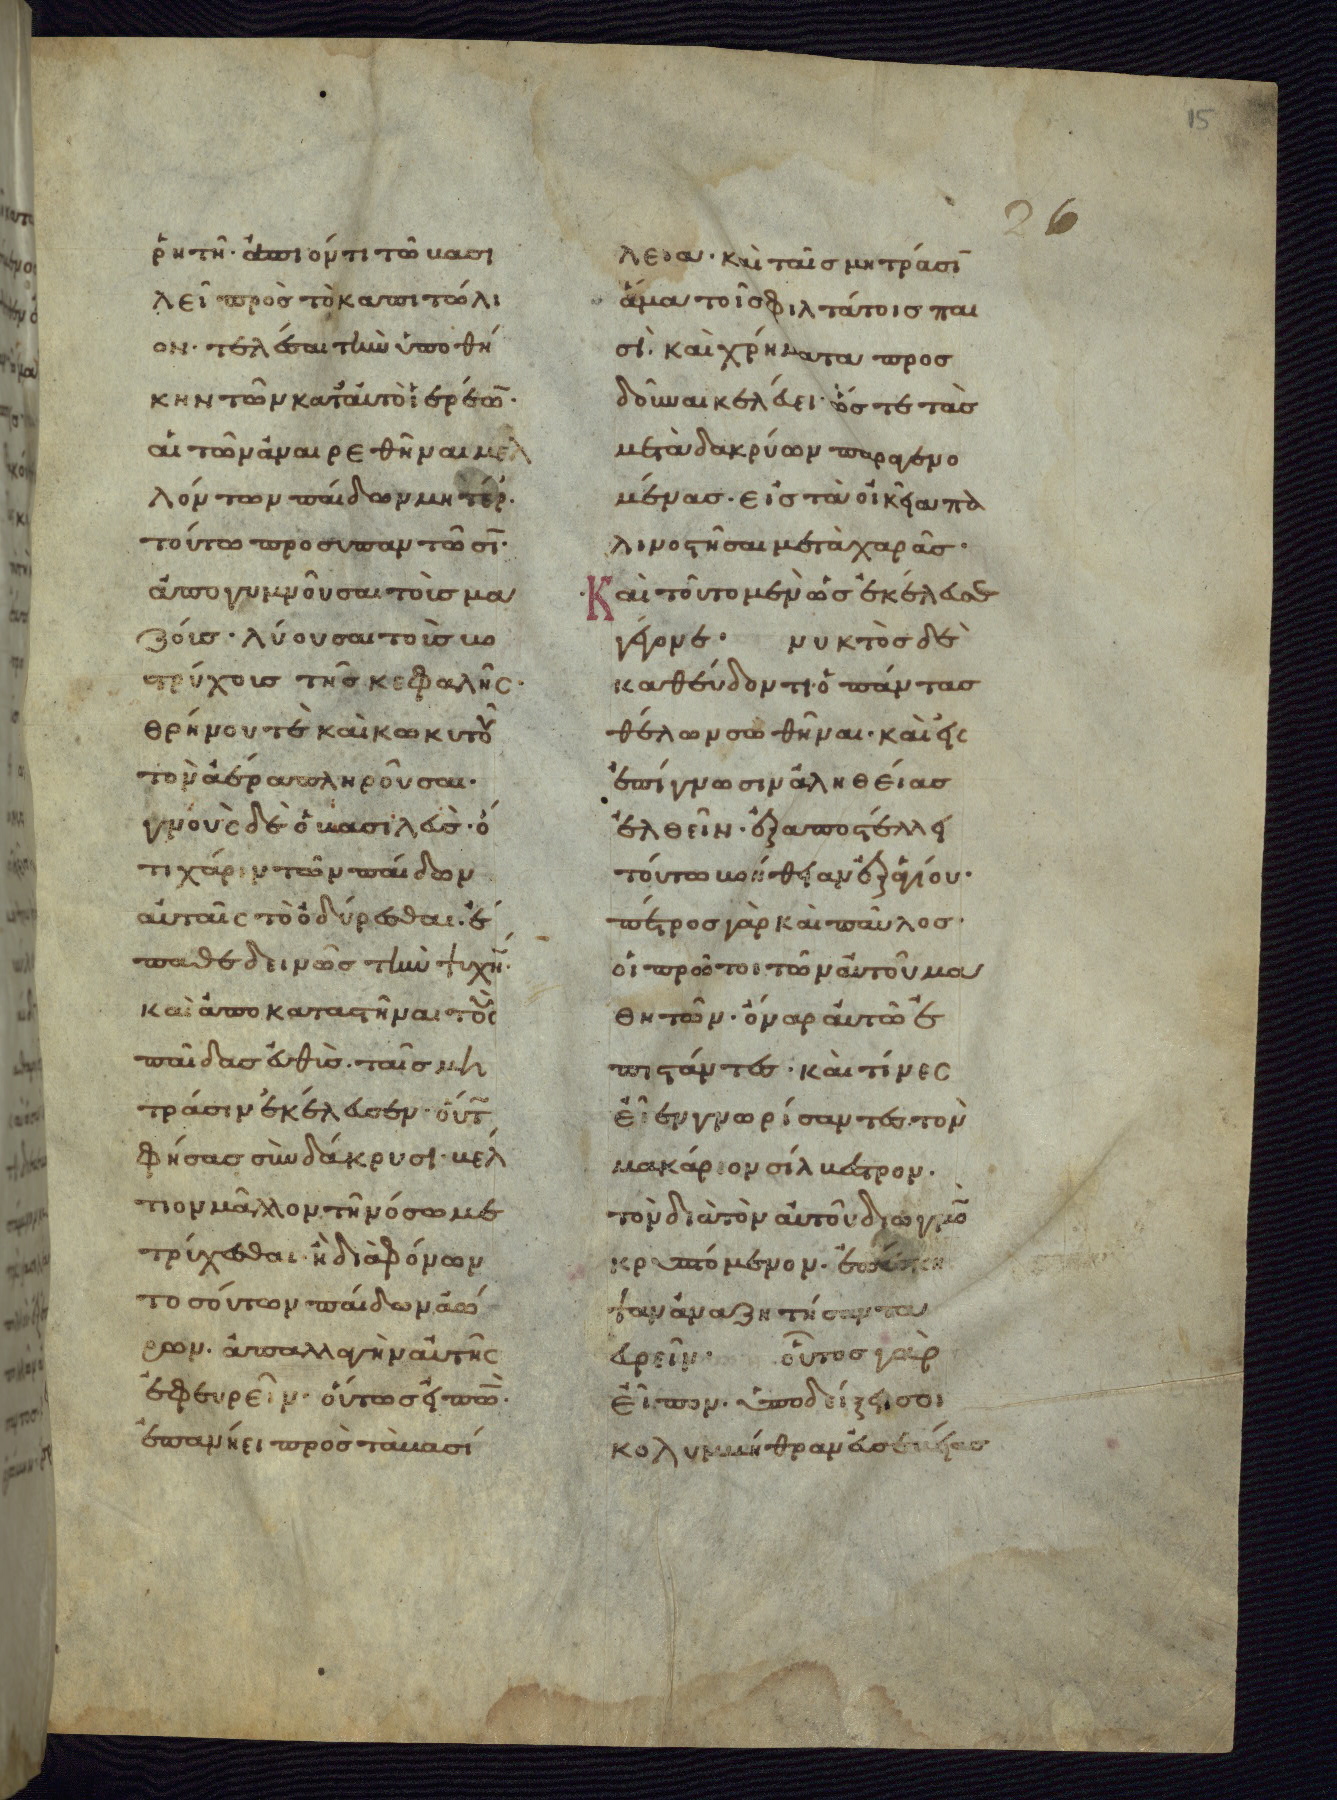 15
26
ῥητῆ· ἀπιόντι τῶ βασι
λεῖ πρὸς τὸ καπιτώλι
ον· τελέσαι τὴν ὑποθή
κην τῶν κατ' αὐτὸ ἱερέω̅·
αἱ τῶν ἀναιρεθῆναι μελ
λόντων παίδων μητέρ·
τούτω προσυπαντῶσι̅·
ἀπογυμνοῦσαι τοὺς μα
ζούς· λύουσαι τοὺς βο
στρύχους τῆς κεφαλῆς·
θρήνου τὲ καὶ κωκυτοῦ
τὸν ἀέρα πληροῦσαι·
γνοὺς δὲ ὁ βασιλεὺς· ὅ
τι χάριν τῶν παίδων
αὐταῖς τὸ ὀδύρεσθαι· ἔ
παθε δεινῶς τὴν ψυχή̅·
καὶ ἀποκαταστῆναι τοὺς
παῖδας εὐθὺς· ταῖς μη
τράσιν ἐκέλευσεν· οὕτ̅
φήσας σὺν δάκρυσι· βέλ
τιον μᾶλλον τῆ νόσω με
τρύχεσθαι· ἢ διὰ φόνων
τοσούτων παίδων ἀώ
ρων· ἀπαλλαγὴν αὐτῆς
ἐφευρεῖν· οὕτως εἰπὼ̅·
ἐπανήει πρὸς τὰ βασί
λεια· καὶ ταῖς μητράσι̅
ἅμα τοῖς φιλτάτοις παι
σὶ· καὶ χρήματα προσ
δοῦναι κελεύει· ὥστε τὰς
μετὰ δακρύων παραγενο
μένας· εἰς τὰ οἰκεῖα πά
λιν οστῆσαι μετὰ χαρᾶς·
Καὶ τοῦτο μὲν ὡς ἐκέλευσε
γέγονε· νυκτὸς δὲ
καθεύδοντι· ὁ πάντας
θέλων σωθῆναι· καὶ εἰς
ἐπίγνωσιν ἀληθείας
ἐλθεῖν· ἐξαποστέλλει
τούτω βοήθειαν ἐξ ἁγίου·
πέτρος γὰρ καὶ παῦλος·
οἱ πρῶτοι τῶν αὐτοῦ μα
θητῶν· ὄναρ αὐτῶ ἐ
πιστάντες· καὶ τίνες
εἶεν γνωρίσαντες· τὸν
μακάριον σίλβεστρον·
τὸν διὰ τὸν αὐτοῦ διωγμὸ̅
κρυπτόμενον· ἐπέσκη
ψαν ἀναζητήσαντα
εὑρεῖν· οὗτος γὰρ
εἶπον· ὑποδείξει σοι
κολυμβήθραν εὐσεβείας